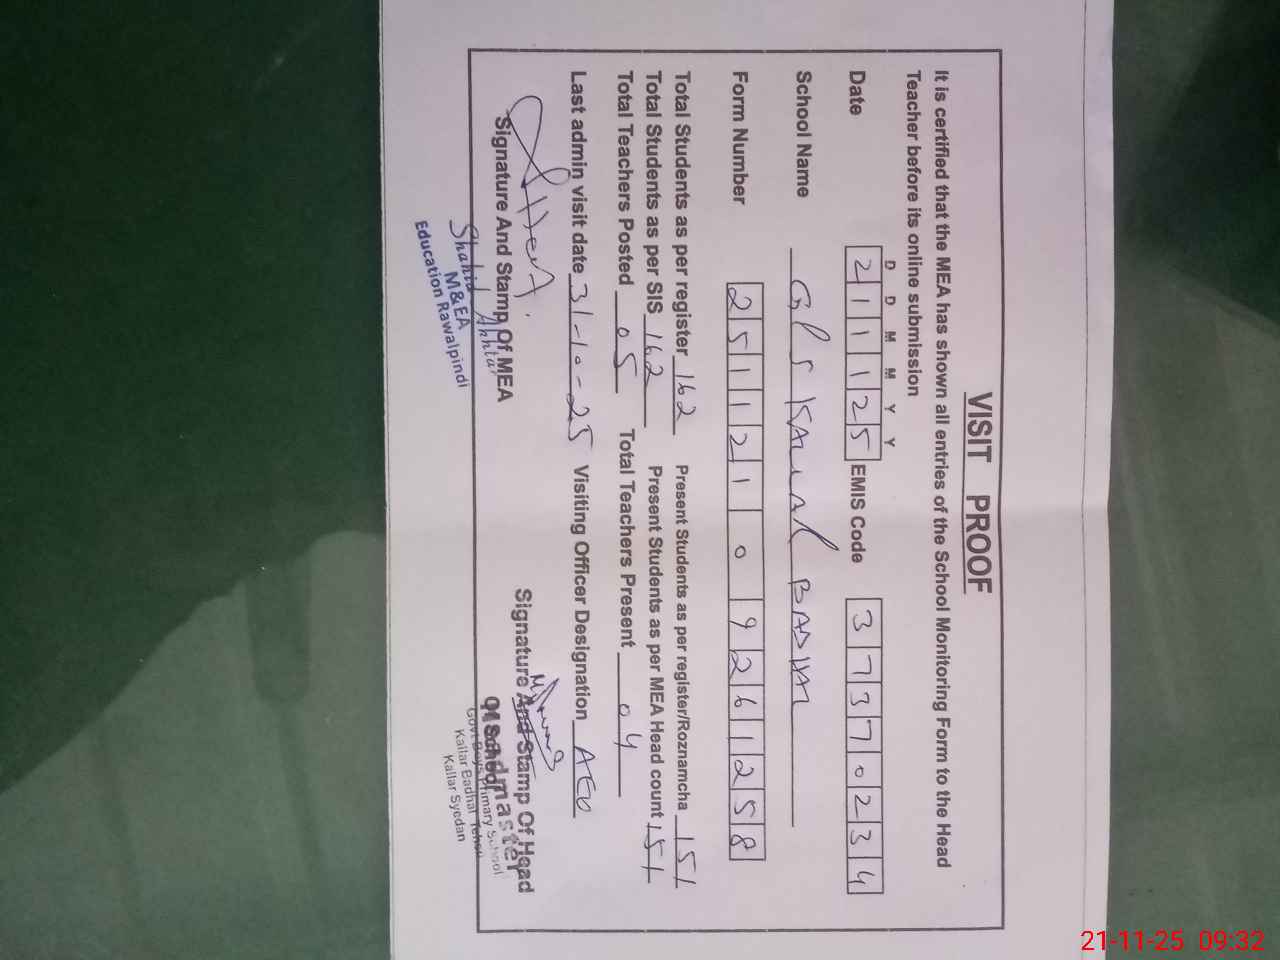 VISIT PROOF
It is certified that the MEA has shown all entries of the School Monitoring Form to the Head
Teacher before its online submission
D D M M Y Y
Date 2 1 1 1 2 5 EMIS Code 3 7 3 7 0 2 3 4
School Name GPS KALLAR BADHAL
Form Number 2 5 1 1 2 1 0 9 2 6 1 2 5 8
Total Students as per register 162 Present Students as per register/Roznamcha 151
Total Students as per SIS 162 Present Students as per MEA Head count 151
Total Teachers Posted 05 Total Teachers Present 04
Last admin visit date 31-10-25 Visiting Officer Designation AEO
Signature And Stamp Of MEA
Shahid Akhtar
M&EA
Education Rawalpindi
Signature And Stamp Of Head
Of School
Headmaster
Govt Boys Primary School
Kallar Badhal Tehsil
Kallar Syedan
21-11-25 09:32